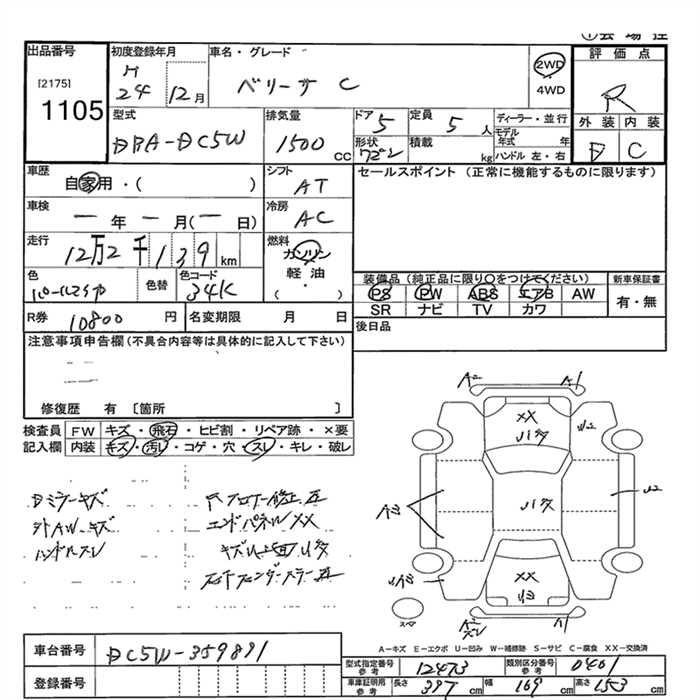 ①会場控
出品番号 初度登録年月 車名・グレード 評価点
[2175] 1105
H 24 12月 ベリーサ C 2WD
4WD R
型式 排気量 ドア 5 定員 5人 ディーラー・並行 外装 内装
DBA-DC5W 1500cc 形状 ワゴン 積載 kg モデル年式 年 D C
ハンドル 左・右
車歴 自家用・( ) シフト AT セールスポイント (正常に機能するものに限ります)
車検 ー年ー月(ー日) 冷房 AC
走行 12万2千139km 燃料 ガソリン
軽油
(・)
色 色替 色コード 34K
装備品(純正品に限り○をつけてください) 新車保証書
PS PW ABS エアB AW 有・無
SR ナビ TV カワ
R券 10800円 名変期限 月 日 後日品
注意事項申告欄(不具合内容等は具体的に記入して下さい)
修復歴 有 〔箇所 〕
検査員 FW キズ・飛石・ヒビ割・リペア跡・×要
記入欄 内装 キズ・汚れ・コゲ・穴・スレ・キレ・破レ
Dミラーキズ
外AWキズ
ハンドルスレ
エンドパネルXX
A2 A1
XX
U2
A3
U2
XX
U3
A2 A1
スペア
A-キズ E-エクボ U-凹み W-補修跡 S-サビ C-腐食 XX-交換済
車台番号 DC5W-359891
登録番号
型式指定番号 参考 12473 類別区分番号 参考 0401
車庫証明用 参考 長さ 397cm 幅 169cm 高さ 153cm